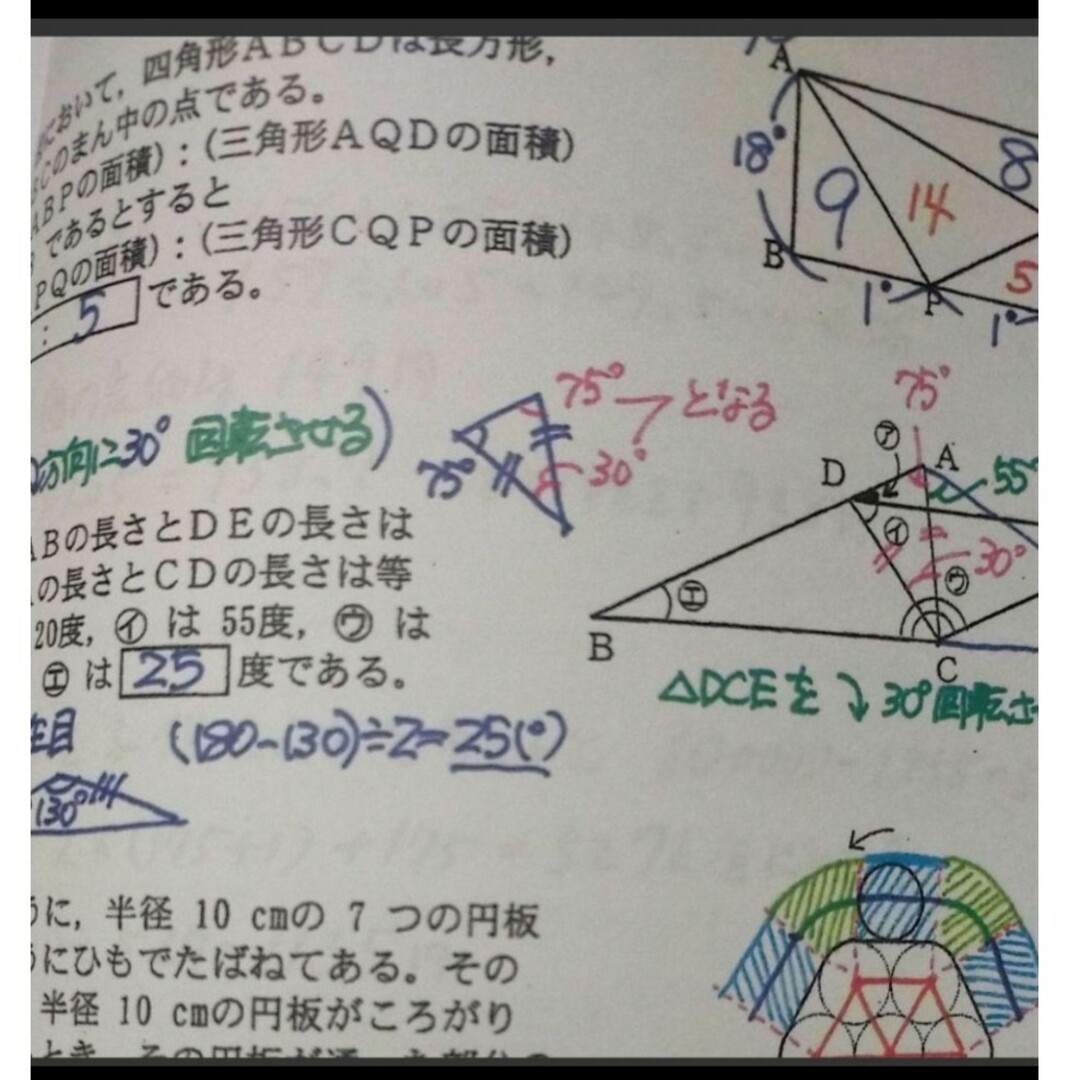 において, 四角形ABCDは長方形,
BCのまん中の点である。
ABPの面積) : (三角形AQDの面積)
であるとすると
PQの面積) : (三角形CQPの面積)
: 5 である。
A
18°
9
14
8
B
1°
P
1°
5
方向に30° 回転させる)
75°
75°
30°
となる
ABの長さとDEの長さは
の長さとCDの長さは等
20度, ㋑ は 55度, ㋒ は
㋓ は 25 度である。
75°
㋐
D
A
55°
㋑
30°
㋒
㋓
B
C
△DCEを 30°回転さ
(180-130)÷2=25(°)
130°
うに, 半径 10 cmの 7 つの円板
うにひもでたばねてある。その
半径 10 cmの円板がころがり
とき, その円板が通った部分の